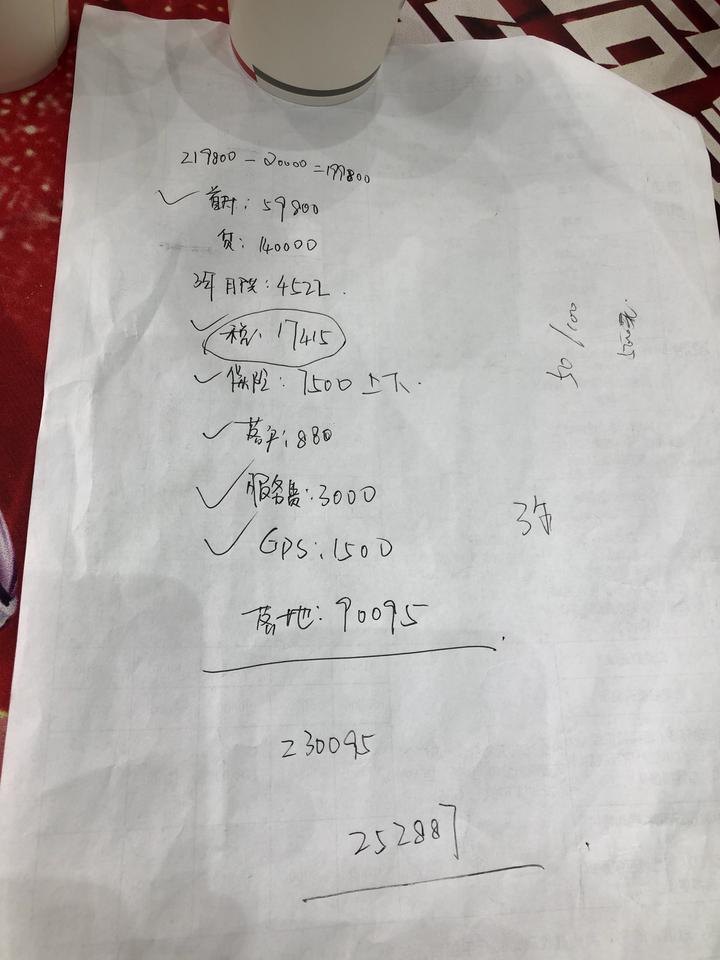 219800 - 20000 = 199800
首付: 59800
贷: 140000
3年 月供: 4522.
税: 17415
保险: 7500 上下.
落户: 880
服务费: 3000
GPS: 1500
落地: 90095
230095
252887
50/100
3年